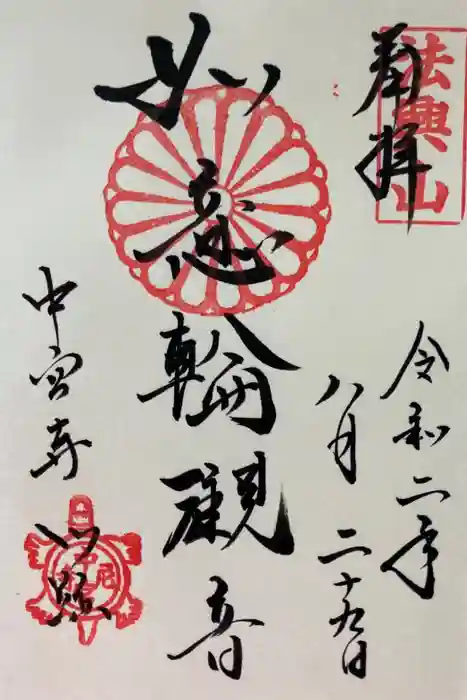 奉拝
法興山
令和二年
八月二十九日
如意輪観音
中宮寺